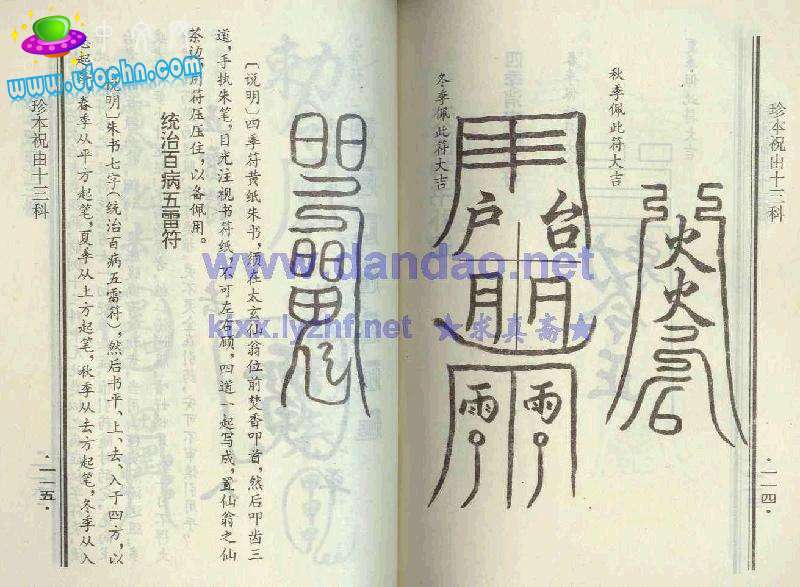 珍本祝由十三科
·一一四·
秋季佩此符大吉
火
火
台
户
日
月
雨 雨
冬季佩此符大吉
〔说明〕四季符黄纸朱书,须在太玄仙翁位前焚香叩首,然后叩齿三
道,手执朱笔,目光注视书符纸,不可左右顾,四道一起写成,置仙翁之仙
茶边 符压压住,以备佩用。
统治百病五雷符
说明〕朱书七字(统治百病五雷符),然后书平、上、去、入于四方,以
起 春季从平方起笔,夏季从上方起笔,秋季从去方起笔,冬季从入
珍本祝由十三科
·一一五·
www.ufochn.com
www.dandao.net
kjxx.lyzhf.net ★求真斋★